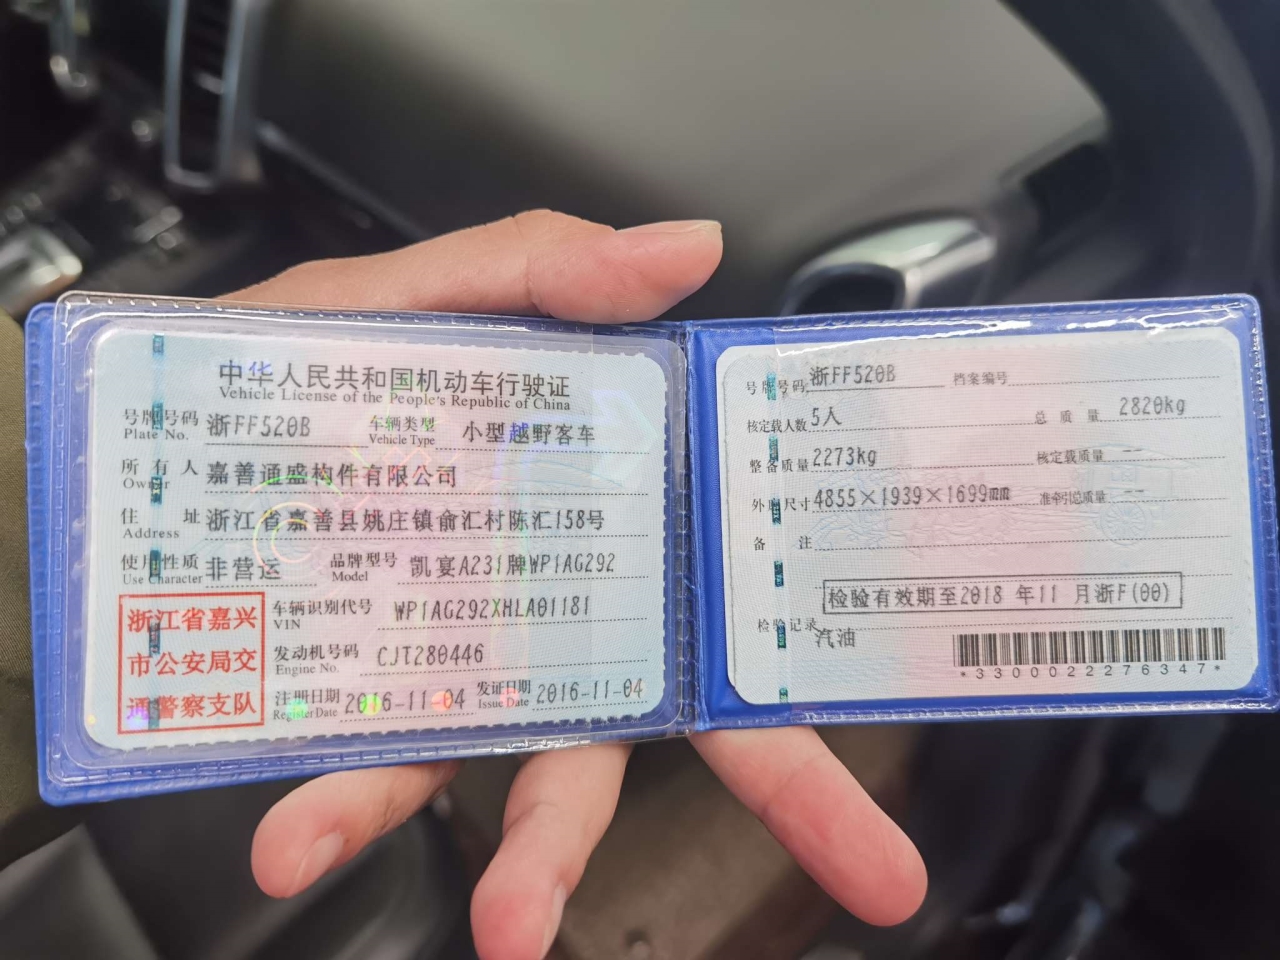 中华人民共和国机动车行驶证
Vehicle License of the People's Republic of China
号牌号码 浙FF520B 车辆类型 小型越野客车
Plate No. Vehicle Type
所有人 嘉善通盛构件有限公司
Owner
住址 浙江省嘉善县姚庄镇俞汇村陈汇158号
Address
使用性质 非营运 品牌型号 凯宴A231牌WP1AG292
Use Character Model
浙江省嘉兴
市公安局交
通警察支队
车辆识别代号 WP1AG292XHLA01181
VIN
发动机号码 CJT280446
Engine No.
注册日期 2016-11-04 发证日期 2016-11-04
Register Date Issue Date
号牌号码 浙FF520B 档案编号
核定载人数 5人 总质量 2820kg
整备质量 2273kg 核定载质量 --
外廓尺寸 4855×1939×1699mm 准牵引总质量 --
备注
检验有效期至2018 年11 月浙F(00)
检验记录
汽油
*3300022276347*